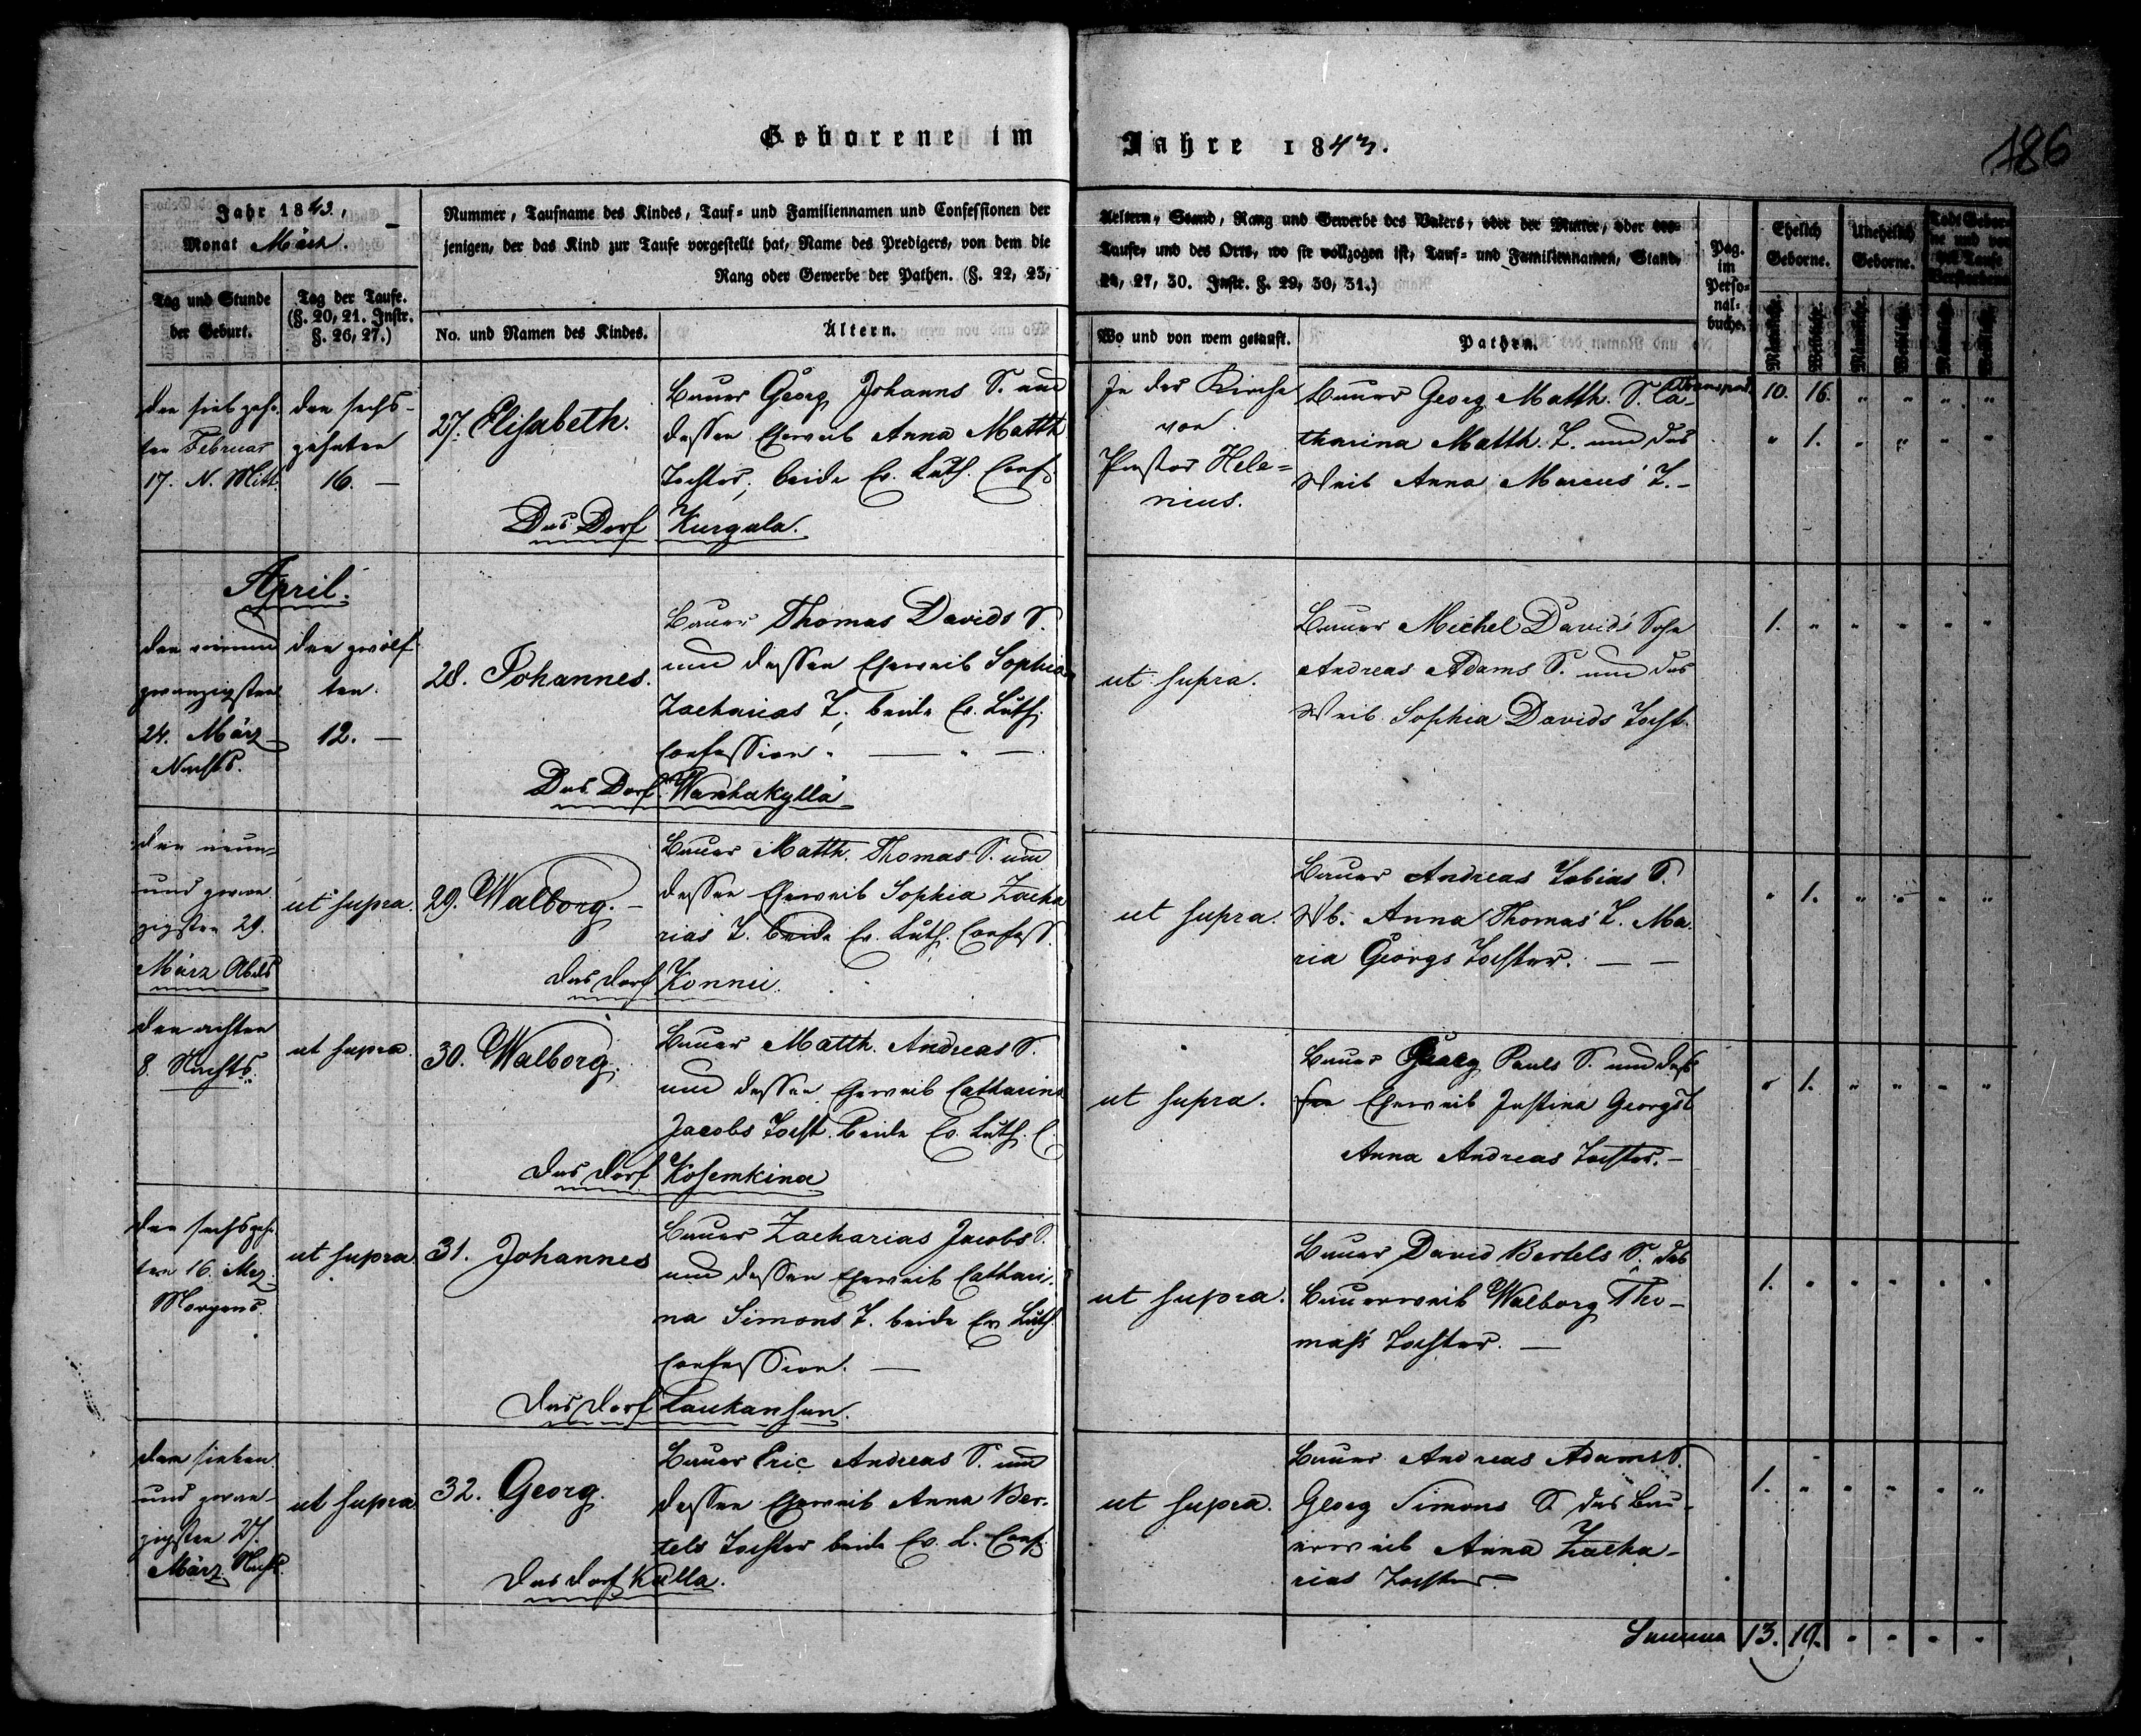 Geborene im Jahre 1843.
186
Jahr 1843.,
Monat März.
Tag und Stunde
der Geburt.
Tag der Taufe.
(§. 20, 21. Instr.
§. 26, 27.)
Nummer, Taufname des Kindes, Tauf- und Familiennamen und Confessionen der
jenigen, der das Kind zur Taufe vorgestellt hat, Name des Predigers, von dem die
Rang oder Gewerbe der Pathen. (§. 22, 23,
No. und Namen des Kindes.
Ältern.
Aeltern, Stand, Rang und Gewerbe des Vaters, oder der Mutter, oder des-
Taufe, und des Orts, wo sie vollzogen ist, Tauf- und Familiennamen, Stand,
24, 27, 30. Instr. §. 29, 30, 31.)
Wo und von wem getauft.
Pathen.
Pag.
im
Perso-
nal-
buche.
Ehelich
Geborne.
Unehelich
Geborne.
Todt Gebor-
ne und vor
der Taufe
Verstorbene
Männlich.
Weiblich.
Männlich.
Weiblich.
Männlich.
Weiblich.
den siebzehn-
ten Februar
17. N. Mitt.
den sechs-
zehnten
16. —
27. Elisabeth.
Bauer Georg Johanns S. und
dessen Eheweib Anna Matth
Tochter, beide Ev. Luth. Conf.
Das Dorf Kurgala.
In der Kirche
von
Pastor Hele=
nius.
Bauer Georg Matth. S. Ca-
tharina Matth. T. und das
Weib Anna Marcus' T. —
Transport. 10. 16. " " " "
" 1. " " " "
April.
den vierund
zwanzigsten
24. März
Nachts.
den zwölf
ten.
12. —
28. Johannes.
Bauer Thomas Davids S.
und dessen Eheweib Sophia
Zacharias T., beide Ev. Luth.
Confession. — " —
Das Dorf Wanhakyllä
ut supra.
Bauer Michel Davids' Sohn
Andreas Adams S. und das
Weib Sophia Davids Tocht.
1. " " " " "
den neun-
und zwan
zigsten 29.
März Abds
ut supra.
29. Walborg. —
Bauer Matth. Thomas S. und
dessen Eheweib Sophia Zacha
rias T. beide Ev. Luth. Confess.
das Dorf Konnu.
ut supra.
Bauer Andreas Tobias S.
Wb. Anna Thomas' T. Ma-
ria Georgs Tochter. — —
" 1. " " " "
den achten
8. Nachts.
ut supra.
30. Walborg.
Bauer Matth. Andreas S.
und dessen Eheweib Catharina
Jacobs Tocht. beide Ev. Luth. C.
das Dorf Kosemkina
ut supra.
Bauer Georg Pauls S. und des-
sen Eheweib Justina Georgs T
Anna Andreas Tochter. —
" 1. " " " "
den sechszehn
ten 16. Mrz
Morgens.
ut supra.
31. Johannes
Bauer Zacharias Jacobs S.
und dessen Eheweib Cathari-
na Simons T. beide Ev Luth.
Confession. —
das Dorf Laukansuu.
ut supra.
Bauer David Bertels S. das
Bauerweib Walborg Tho-
mass Tochter. —
1. " " " " "
den sieben
und zwan-
zigsten 27.
März Nachts.
ut supra
32. Georg.
Bauer Eric Andreas S. und
dessen Eheweib Anna Ber-
tels Tochter beide Ev. L. Conf.
das Dorf Kulla.
ut supra.
Bauer Andreas Adams S.
Georg Simons S das Bau-
erweib Anna Zacha-
rias Tochter
1. " " " " "
Summa 13. 19. " " " "